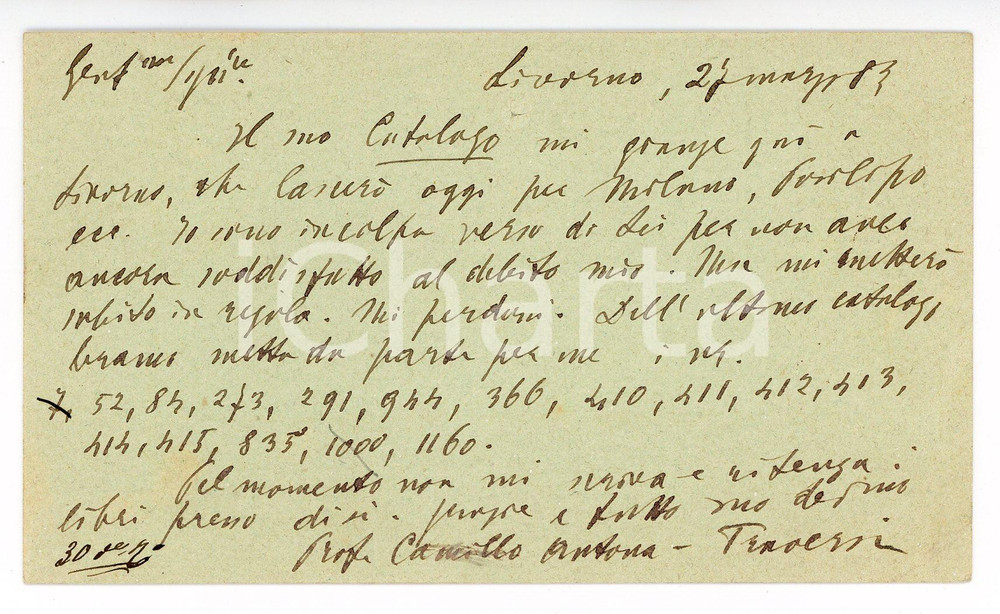 Livorno, 27 marzo 83
Il suo Catalogo mi giunge qui a
Livorno, che lascerò oggi per Milano, Posilipo
ecc. Io sono in colpa verso di Lei per non aver
ancora soddisfatto al debito mio. Ma mi metterò
subito in regola. Mi perdoni. Dell' ultimo catalogo
bramo metta da parte per me i nr.
7, 52, 84, 273, 291, 944, 366, 410, 411, 412, 413,
414, 415, 835, 1000, 1160.
Pel momento non mi scriva e ritenga i
libri presso di sé. Sempre e tutto suo dev.mo
Prof. Camillo Antona-Traversi
30
iCharta